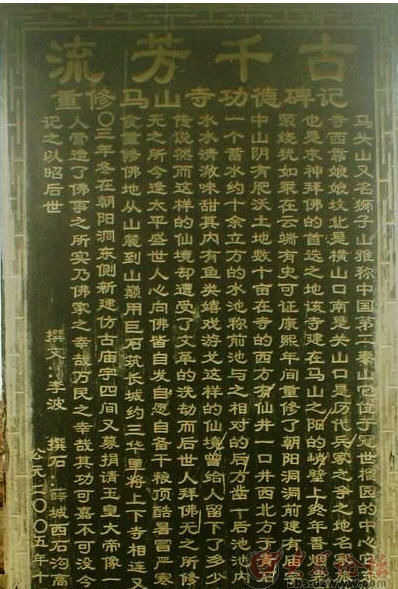 流芳千古
重修马山寺功德碑记
马头山又名狮子山雅称中国第二泰山它位于冠世榴园的中心它东
寺西靠娘娘坟北是横山口南是关山口是历代兵家之争之地名家
也是求神拜佛的首选之地该寺建在马山之阳的峭壁上终年香烟
荣绕犹如乘在云端有史可证康熙年间重修了朝阳洞洞前建有庙
中山阴有肥沃土地数十亩在寺的西方有仙井一口井西北方
一个蓄水约十余立方的水池称前池与之相对的后方凿十后池池内
水水清澈味甜其内有鱼类嬉戏游戈这样的仙境曾给人留下了多少
传说然而这样的仙境却遭受了文革的洗劫而后世人拜佛无之所修
无之所今逢太平盛世人心向佛皆自发自愿自备干粮顶酷暑冒严寒
食重修佛地从山麓到山巅用巨石筑长城约三华里将上下寺相连又
〇三年冬在朝阳洞东侧新建仿古庙宇四间又募捐请玉皇大帝像
人营造了佛事之所实乃佛家之幸哉万民之幸哉其功可嘉不可没今
记之以昭后世
撰文：李波 撰石：薛城西石沟高
公元二〇〇五年十